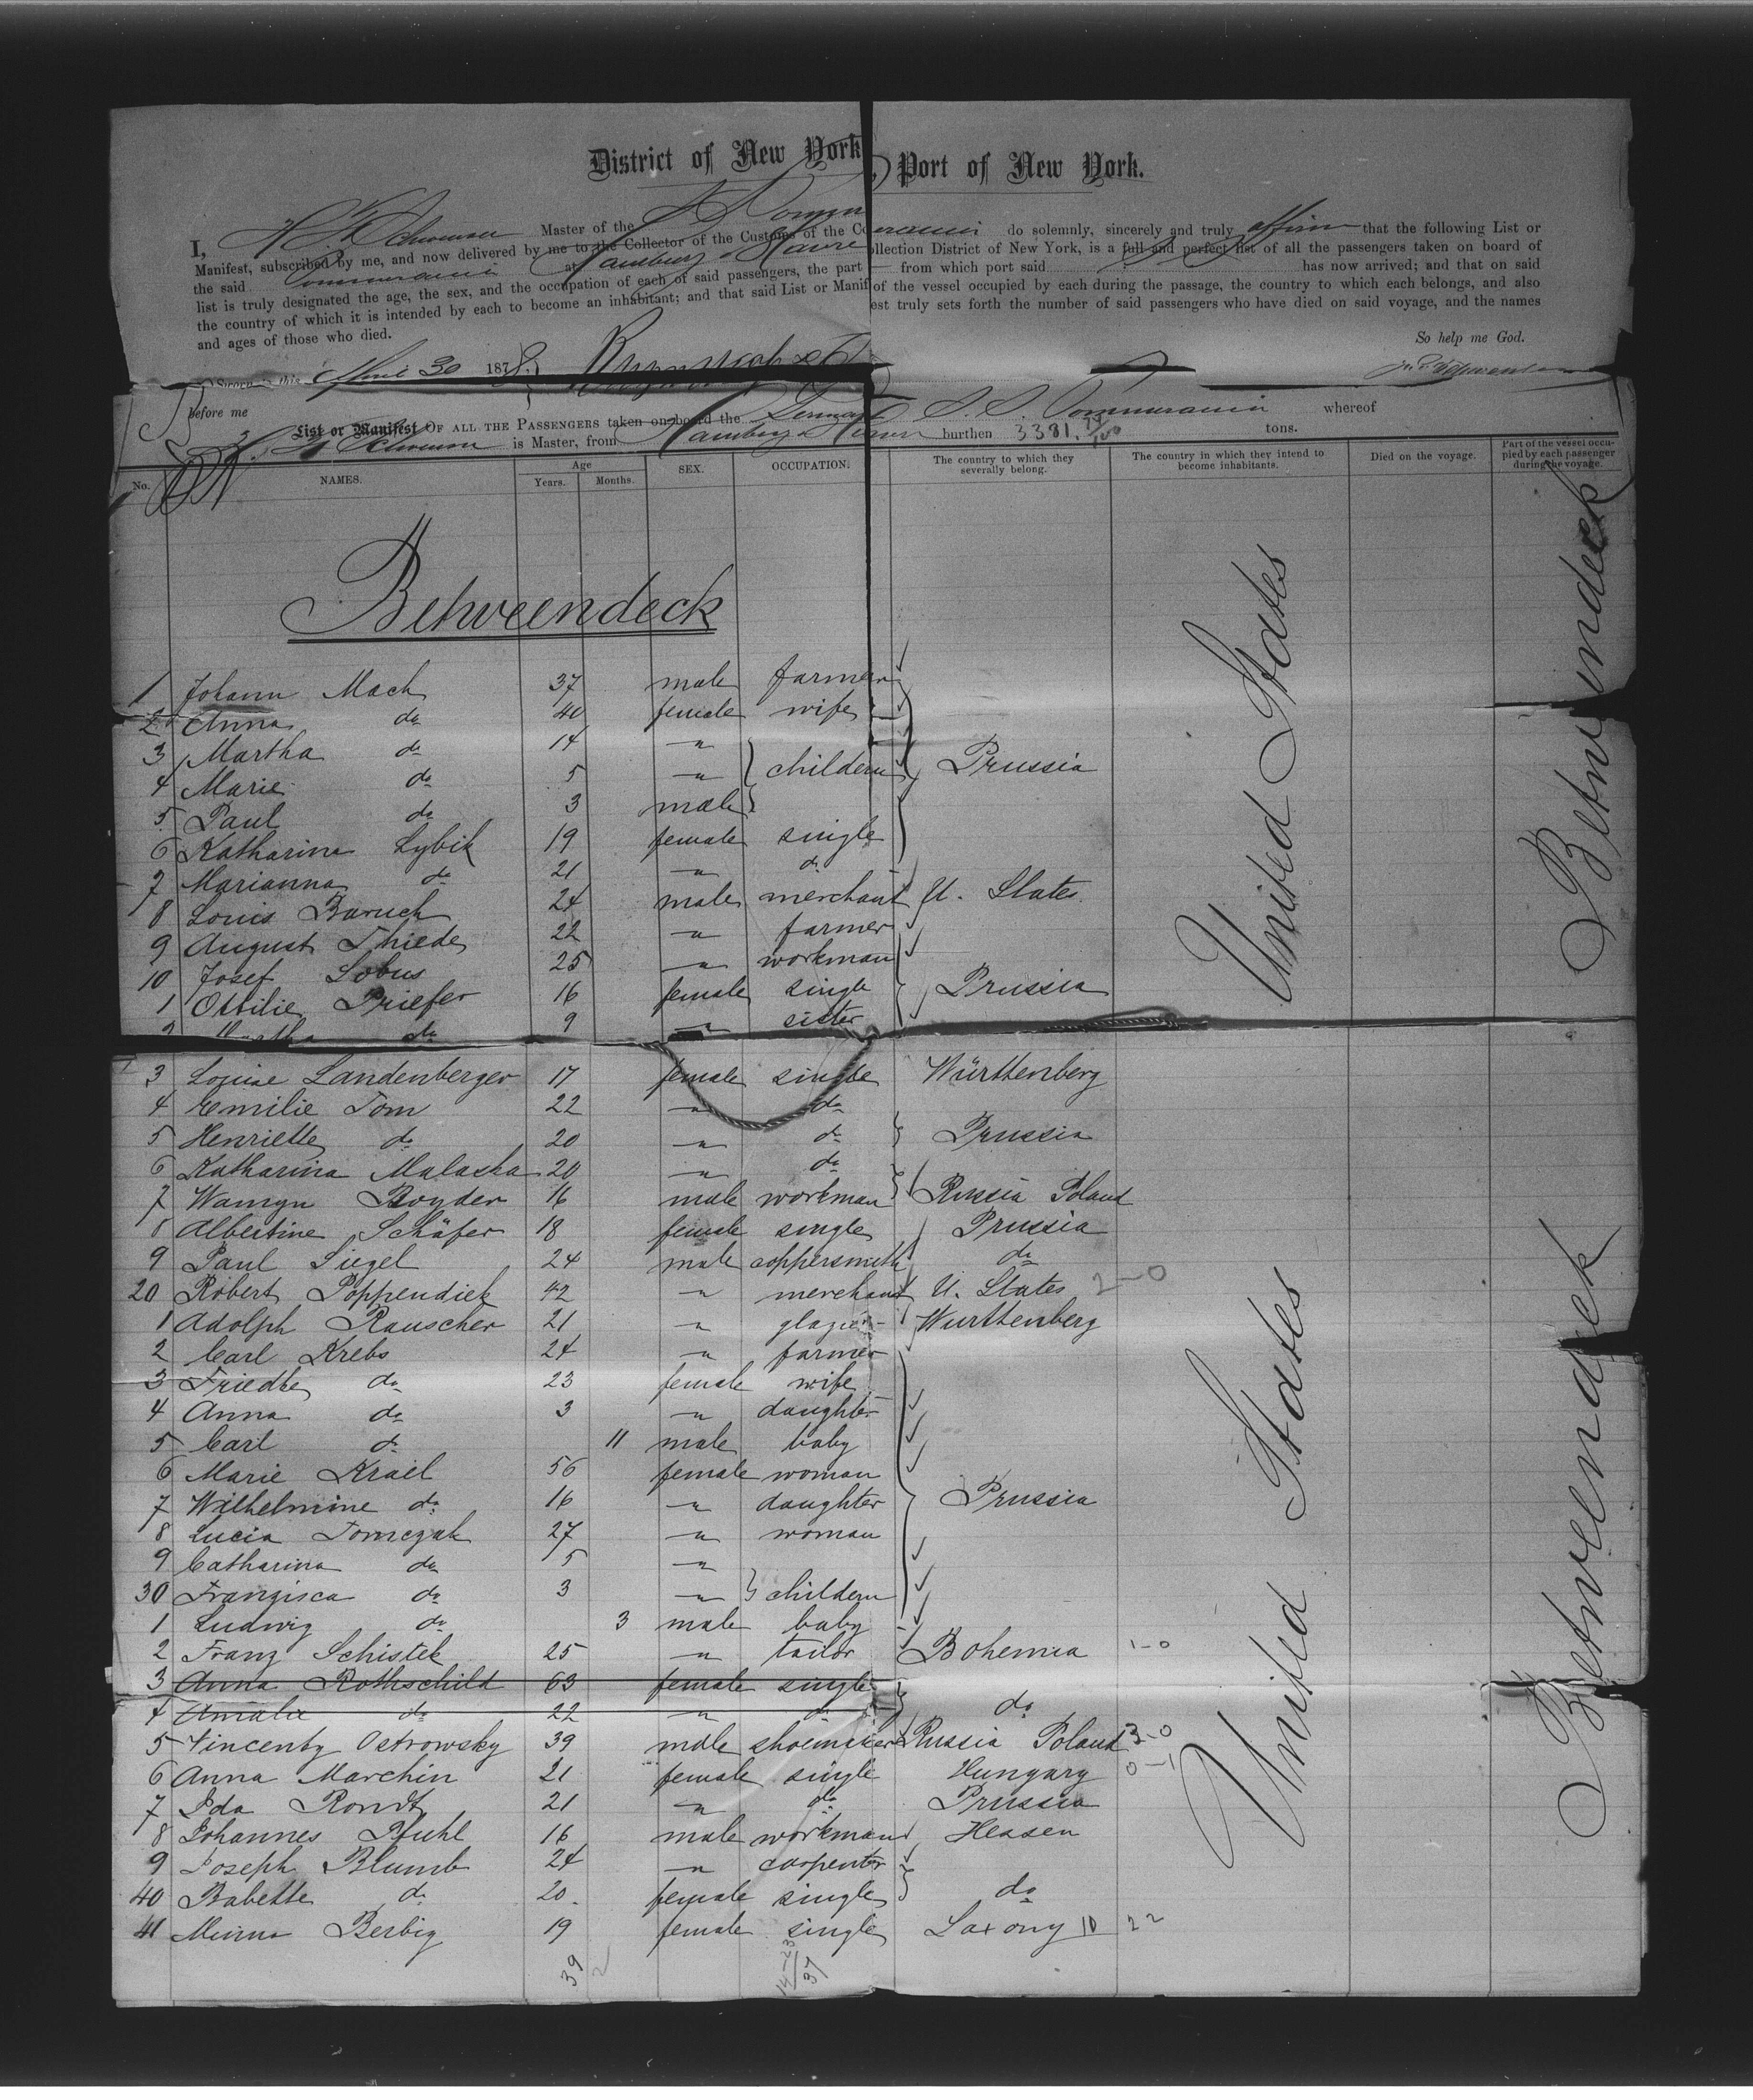 District of New York, Port of New York.
I, H. F. Schwensen Master of the S. S. Pommerania do solemnly, sincerely and truly affirm that the following List or
Manifest, subscribed by me, and now delivered by me to the Collector of the Customs of the Collection District of New York, is a full and perfect list of all the passengers taken on board of
the said Pommerania at Hamburg & Havre from which port said has now arrived; and that on said
list is truly designated the age, the sex, and the occupation of each of said passengers, the part of the vessel occupied by each during the passage, the country to which each belongs, and also
the country of which it is intended by each to become an inhabitant; and that said List or Manifest truly sets forth the number of said passengers who have died on said voyage, and the names
and ages of those who died.
So help me God.
Sworn to this April 30 1878
before me
List or Manifest OF ALL THE PASSENGERS taken on board the German S. S. Pommerania whereof
is Master, from Hamburg & Havre burthen 3381. 74/100 tons.
No. NAMES. Age Years. Months. SEX. OCCUPATION. The country to which they severally belong. The country in which they intend to become inhabitants. Died on the voyage. Part of the vessel occupied by each passenger during the voyage.
Betweendeck
1 Johann Mach 37 male farmer
2 Anna do 40 female wife
3 Martha do 14 "
4 Marie do 5 " childern Prussia
5 Paul do 3 male
6 Katharina Lybik 19 female single
7 Marianna do 21 " do
8 Louis Baruch 24 male merchant U. States
9 August Thiede 22 " farmer
10 Josef Lobus 25 " workman
1 Ottilie Priefer 16 female single Prussia
2 Martha do 9 " sister
3 Louise Landenberger 17 female single Württenberg
4 Emilie Tom 22 " do
5 Henriette do 20 " do Prussia
6 Katharina Malaska 20 " do
7 16 male workman Russia Poland
8 Albertine Schäfer 18 female single Prussia
9 Paul Siegel 24 male coppersmith do
20 Robert Poppendiek 42 " merchant U. States 2-0
1 Adolph Rauscher 21 " glazier Wurttenberg
2 Carl Krebs 24 " farmer
3 Friedke do 23 female wife
4 Anna do 3 " daughter
5 Carl do 11 male baby
6 Marie Krael 56 female woman
7 Wilhelmine do 16 " daughter Prussia
8 Lucia Tomczak 27 " woman
9 Catharina do 5 "
30 Franzisca do 3 " childern
1 Ludwig do 3 male baby
2 Franz Schistek 25 " tailor Bohemia 1-0
3 Anna Rothschild 63 female single
4 Amalie do 22 " do do
5 Vincenty Ostrowsky 39 male shoemaker Russia Poland 3-0
6 Anna Marchin 21 female single Hungary 0-1
7 Ida Rondt 21 " do Prussia
8 Johannes Pfuhl 16 male workman Hessen
9 Joseph Blumb 24 " carpenter
40 Babette do 20 female single do
41 Minna Berbig 19 female single Saxony 10 22
39
2
14-23
37
United States
United States
Betweendeck
Betweendeck